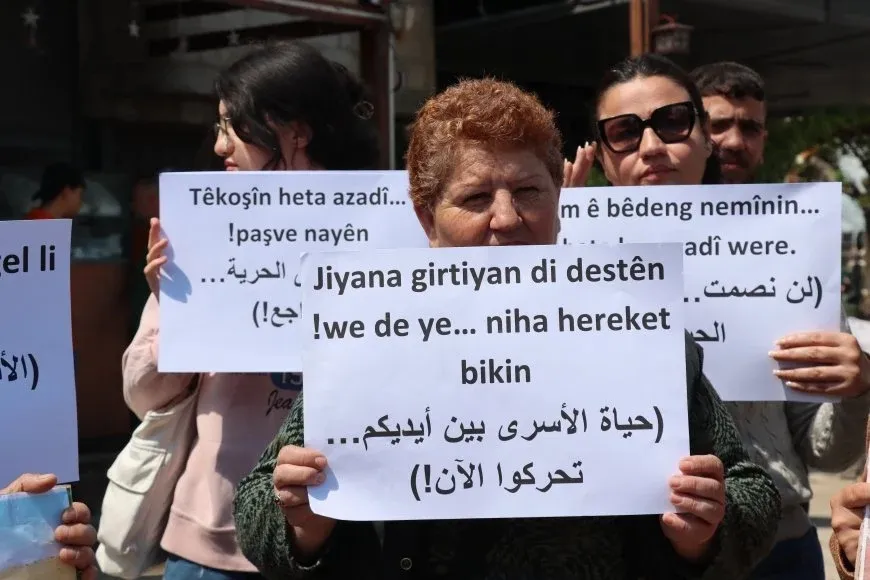 gel li
(الأ
Têkoşîn heta azadî...
!paşve nayên
الحرية...
اجع!)
Jiyana girtiyan di destên
!we de ye... niha hereket
bikin
(حياة الأسرى بين أيديكم...
تحركوا الآن!)
m ê bêdeng nemînin...
adî were.
(لن نصمت..
الح
Jea